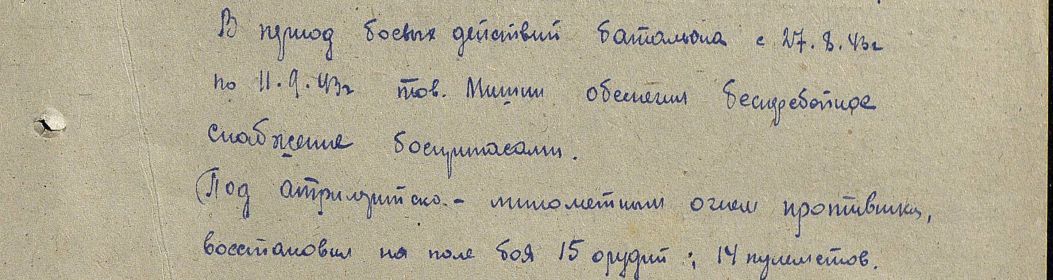 В период боевых действий батальона с 27.8.43г
по 11.9.43г тов. Мишин обеспечил бесперебойное
снабжение боеприпасами.
Под артиллрийско.- минометным огнем противника,
восстановил на поле боя 15 орудий; 14 пулеметов.